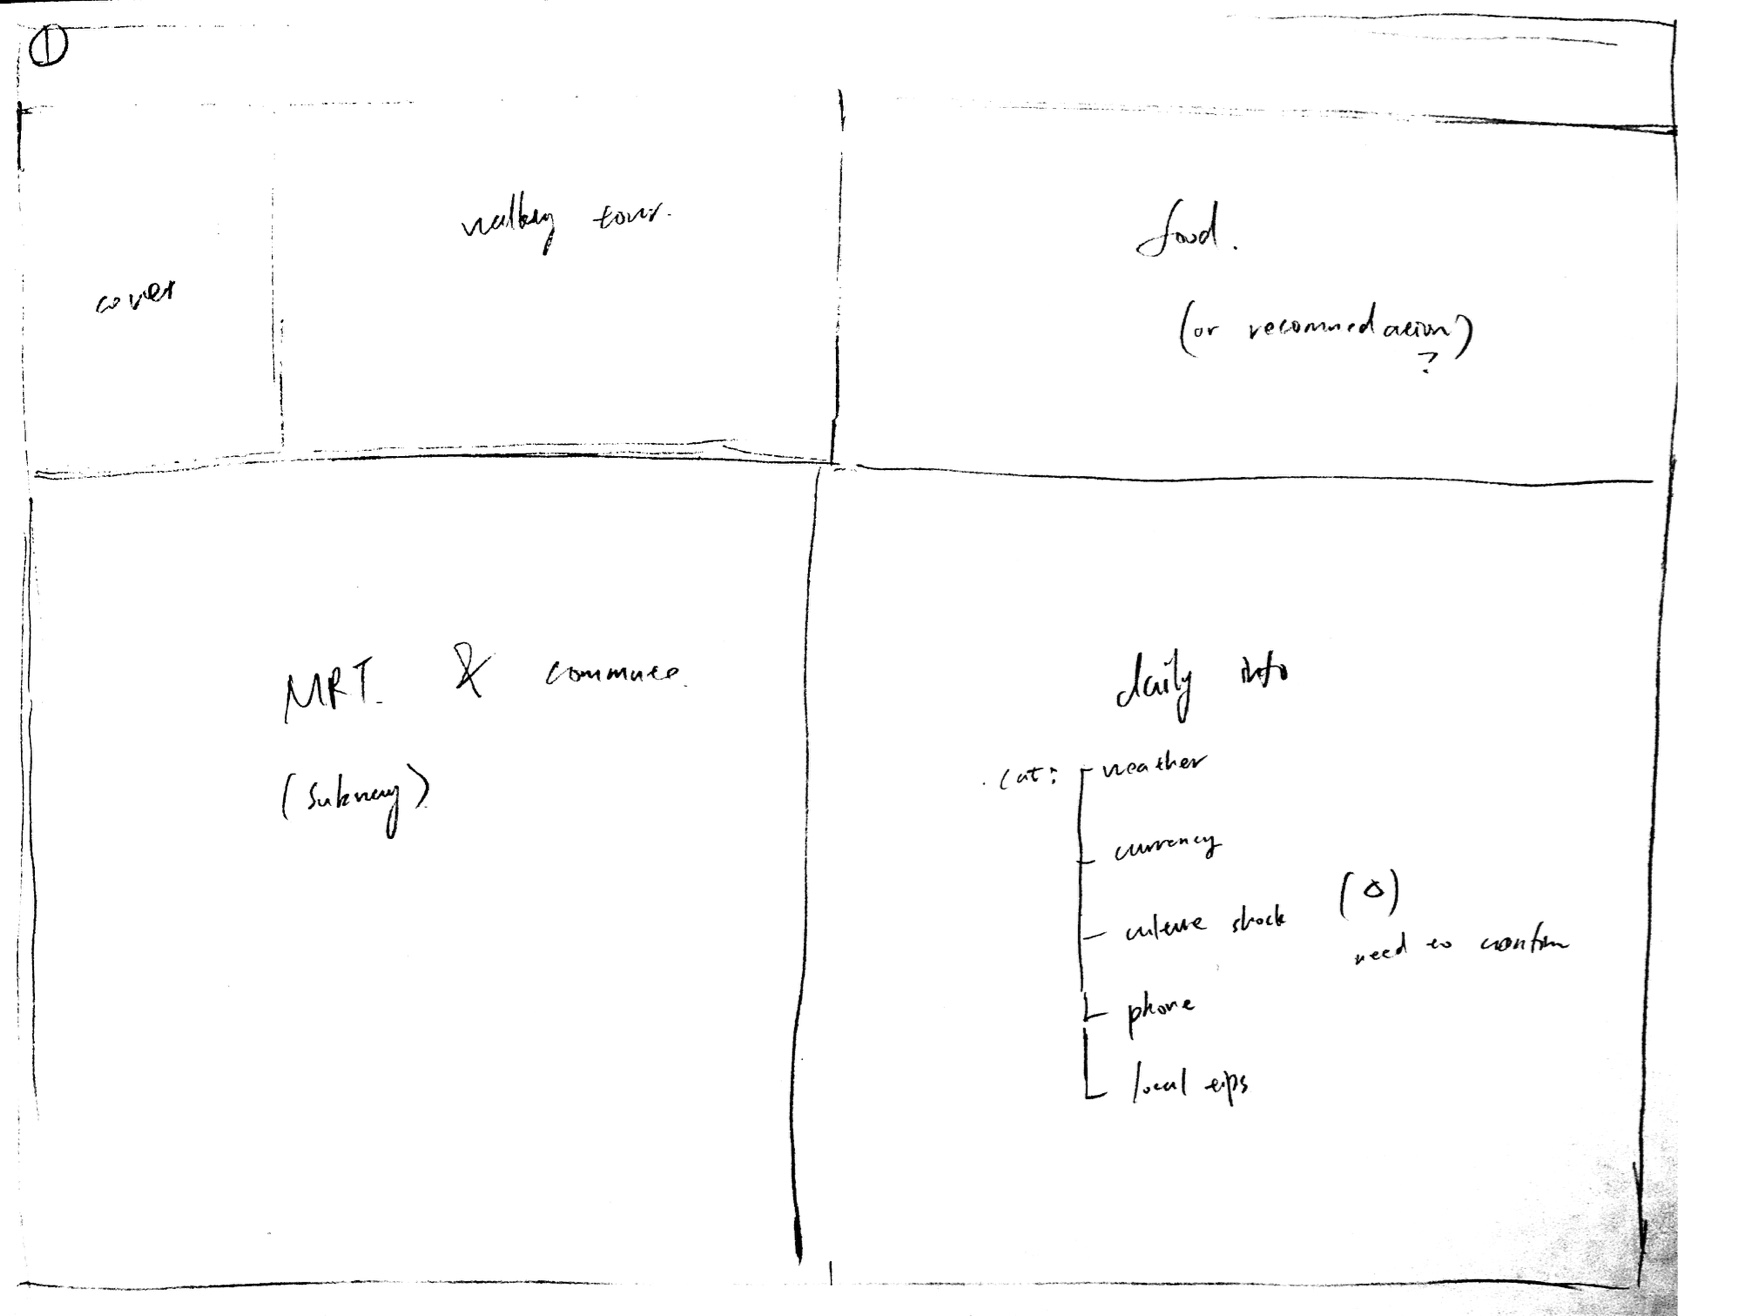 ①
walking tour.
cover
food.
(or recommedation)
?
MRT. & commute.
(subway)
daily info
· cat: weather
currency
culture shock (△)
need to confirm
phone
local tips